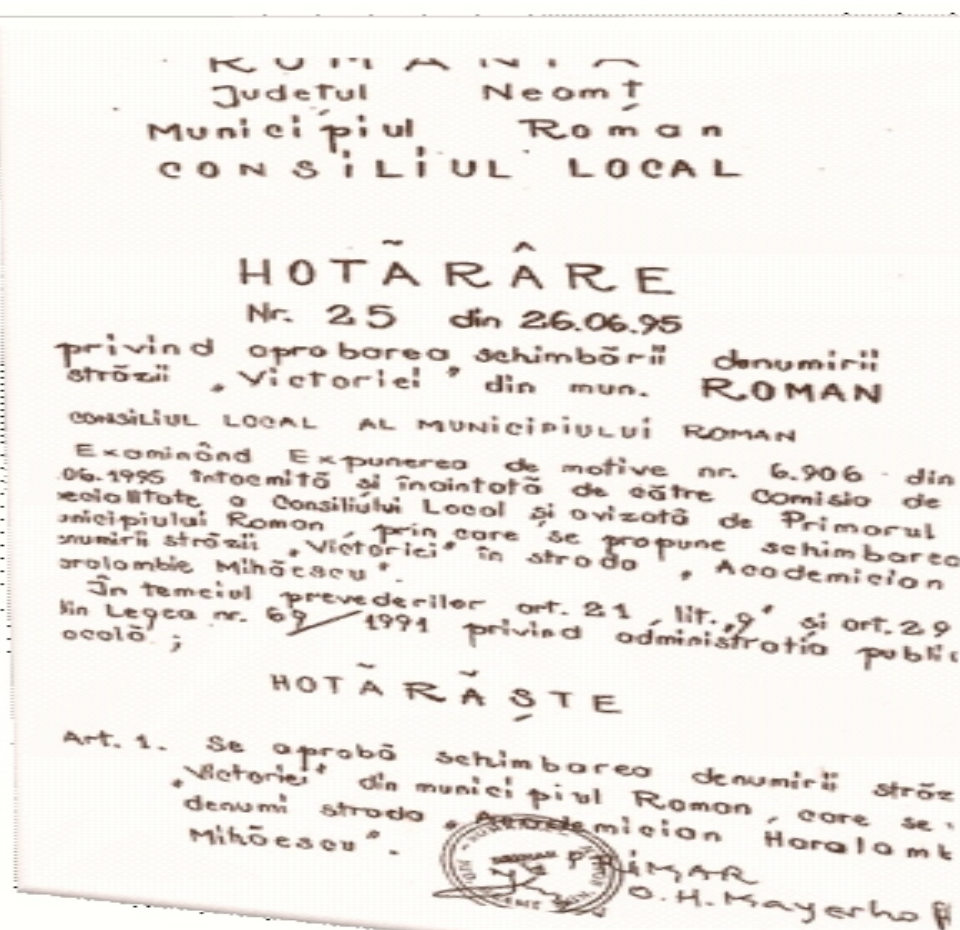 ROMÂNIA
Județul Neamț
Municipiul Roman
CONSILIUL LOCAL
HOTĂRÂRE
Nr. 25 din 26.06.95
privind aprobarea schimbării denumirii
străzii „Victoriei" din mun. ROMAN
CONSILIUL LOCAL AL MUNICIPIULUI ROMAN
Examinând Expunerea de motive nr. 6.906 din
.06.1995 întocmită și înaintată de către Comisia de
ecialitate a Consiliului Local și avizată de Primarul
unicipiului Roman, prin care se propune schimbarea
enumirii străzii „Victoriei" în strada „Academician
aralambie Mihăescu".
În temeiul prevederilor art. 21, lit. „g" și art. 29
din Legea nr. 69/1991 privind administrația public
ocală ;
HOTĂRĂȘTE
Art. 1. Se aprobă schimbarea denumirii străz
„Victoriei" din municipiul Roman, care se
denumi strada „Academician Haralamb
Mihăescu".
PRIMAR
O. H. Mayerho